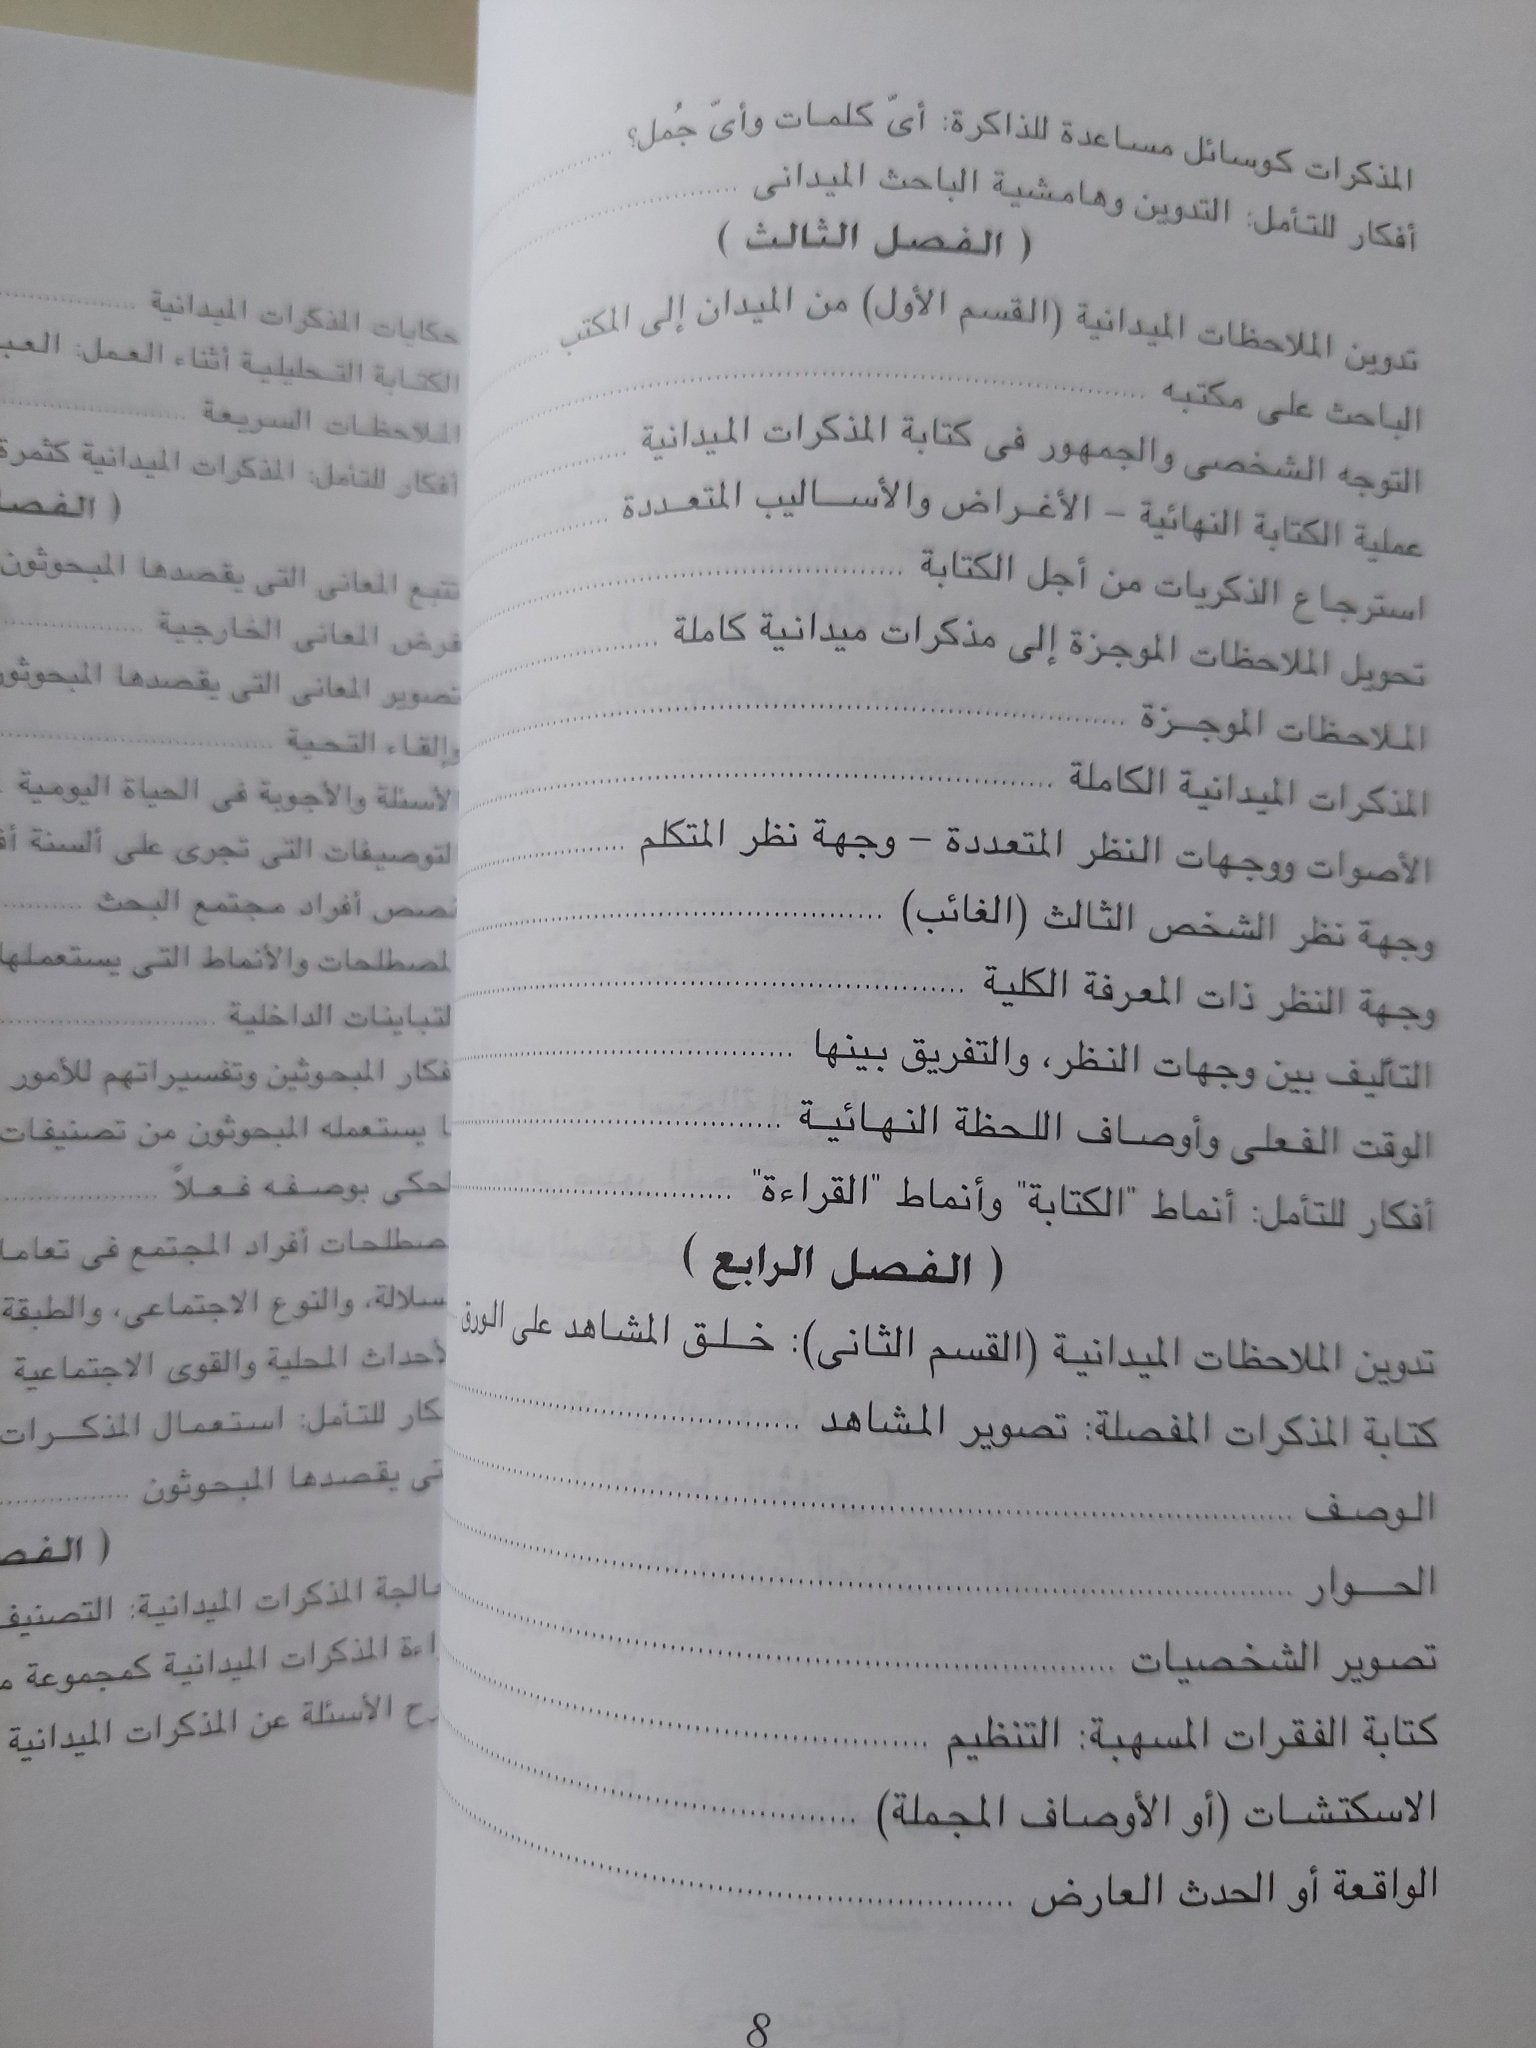 المذكرات كوسائل مساعدة للذاكرة: أىّ كلمات وأىّ جُمل؟
أفكار للتأمل: التدوين وهامشية الباحث الميدانى
( الفصل الثالث )
تدوين الملاحظات الميدانية (القسم الأول) من الميدان إلى المكتب
الباحث على مكتبه
التوجه الشخصى والجمهور فى كتابة المذكرات الميدانية
عملية الكتابة النهائية – الأغراض والأساليب المتعددة
استرجاع الذكريات من أجل الكتابة
تحويل الملاحظات الموجزة إلى مذكرات ميدانية كاملة
الملاحظات الموجزة
المذكرات الميدانية الكاملة
الأصوات ووجهات النظر المتعددة – وجهة نظر المتكلم
وجهة نظر الشخص الثالث (الغائب)
وجهة النظر ذات المعرفة الكلية
التأليف بين وجهات النظر، والتفريق بينها
الوقت الفعلى وأوصاف اللحظة النهائية
أفكار للتأمل: أنماط "الكتابة" وأنماط "القراءة"
( الفصل الرابع )
تدوين الملاحظات الميدانية (القسم الثانى): خلق المشاهد على الورق
كتابة المذكرات المفصلة: تصوير المشاهد
الوصف
الحوار
تصوير الشخصيات
كتابة الفقرات المسهبة: التنظيم
الاسكتشات (أو الأوصاف المجملة)
الواقعة أو الحدث العارض
8
حكايات المذكرات الميدانية
الكتابة التحليلية أثناء العمل:
الملاحظات السريعة
أفكار للتأمل: المذكرات الميدانية كثمرة
تتبع المعانى التى يقصدها المبحوثون
فرض المعانى الخارجية
تصوير المعانى التى يقصدها المبحوثون
وإلقاء التحية
والأجوبة فى الحياة اليومية
التى تجرى على ألسنة
أفراد مجتمع البحث
والأنماط التى يستعملها
الداخلية
المبحوثين وتفسيراتهم للأمور
يستعمله المبحوثون من تصنيفات
بوصفه فعلاً
أفراد المجتمع فى
والنوع الاجتماعى، والطبقة
المحلية والقوى الاجتماعية
للتأمل: استعمال المذكرات
يقصدها المبحوثون
المذكرات الميدانية:
المذكرات الميدانية كمجموعة
الأسئلة عن المذكرات الميدانية